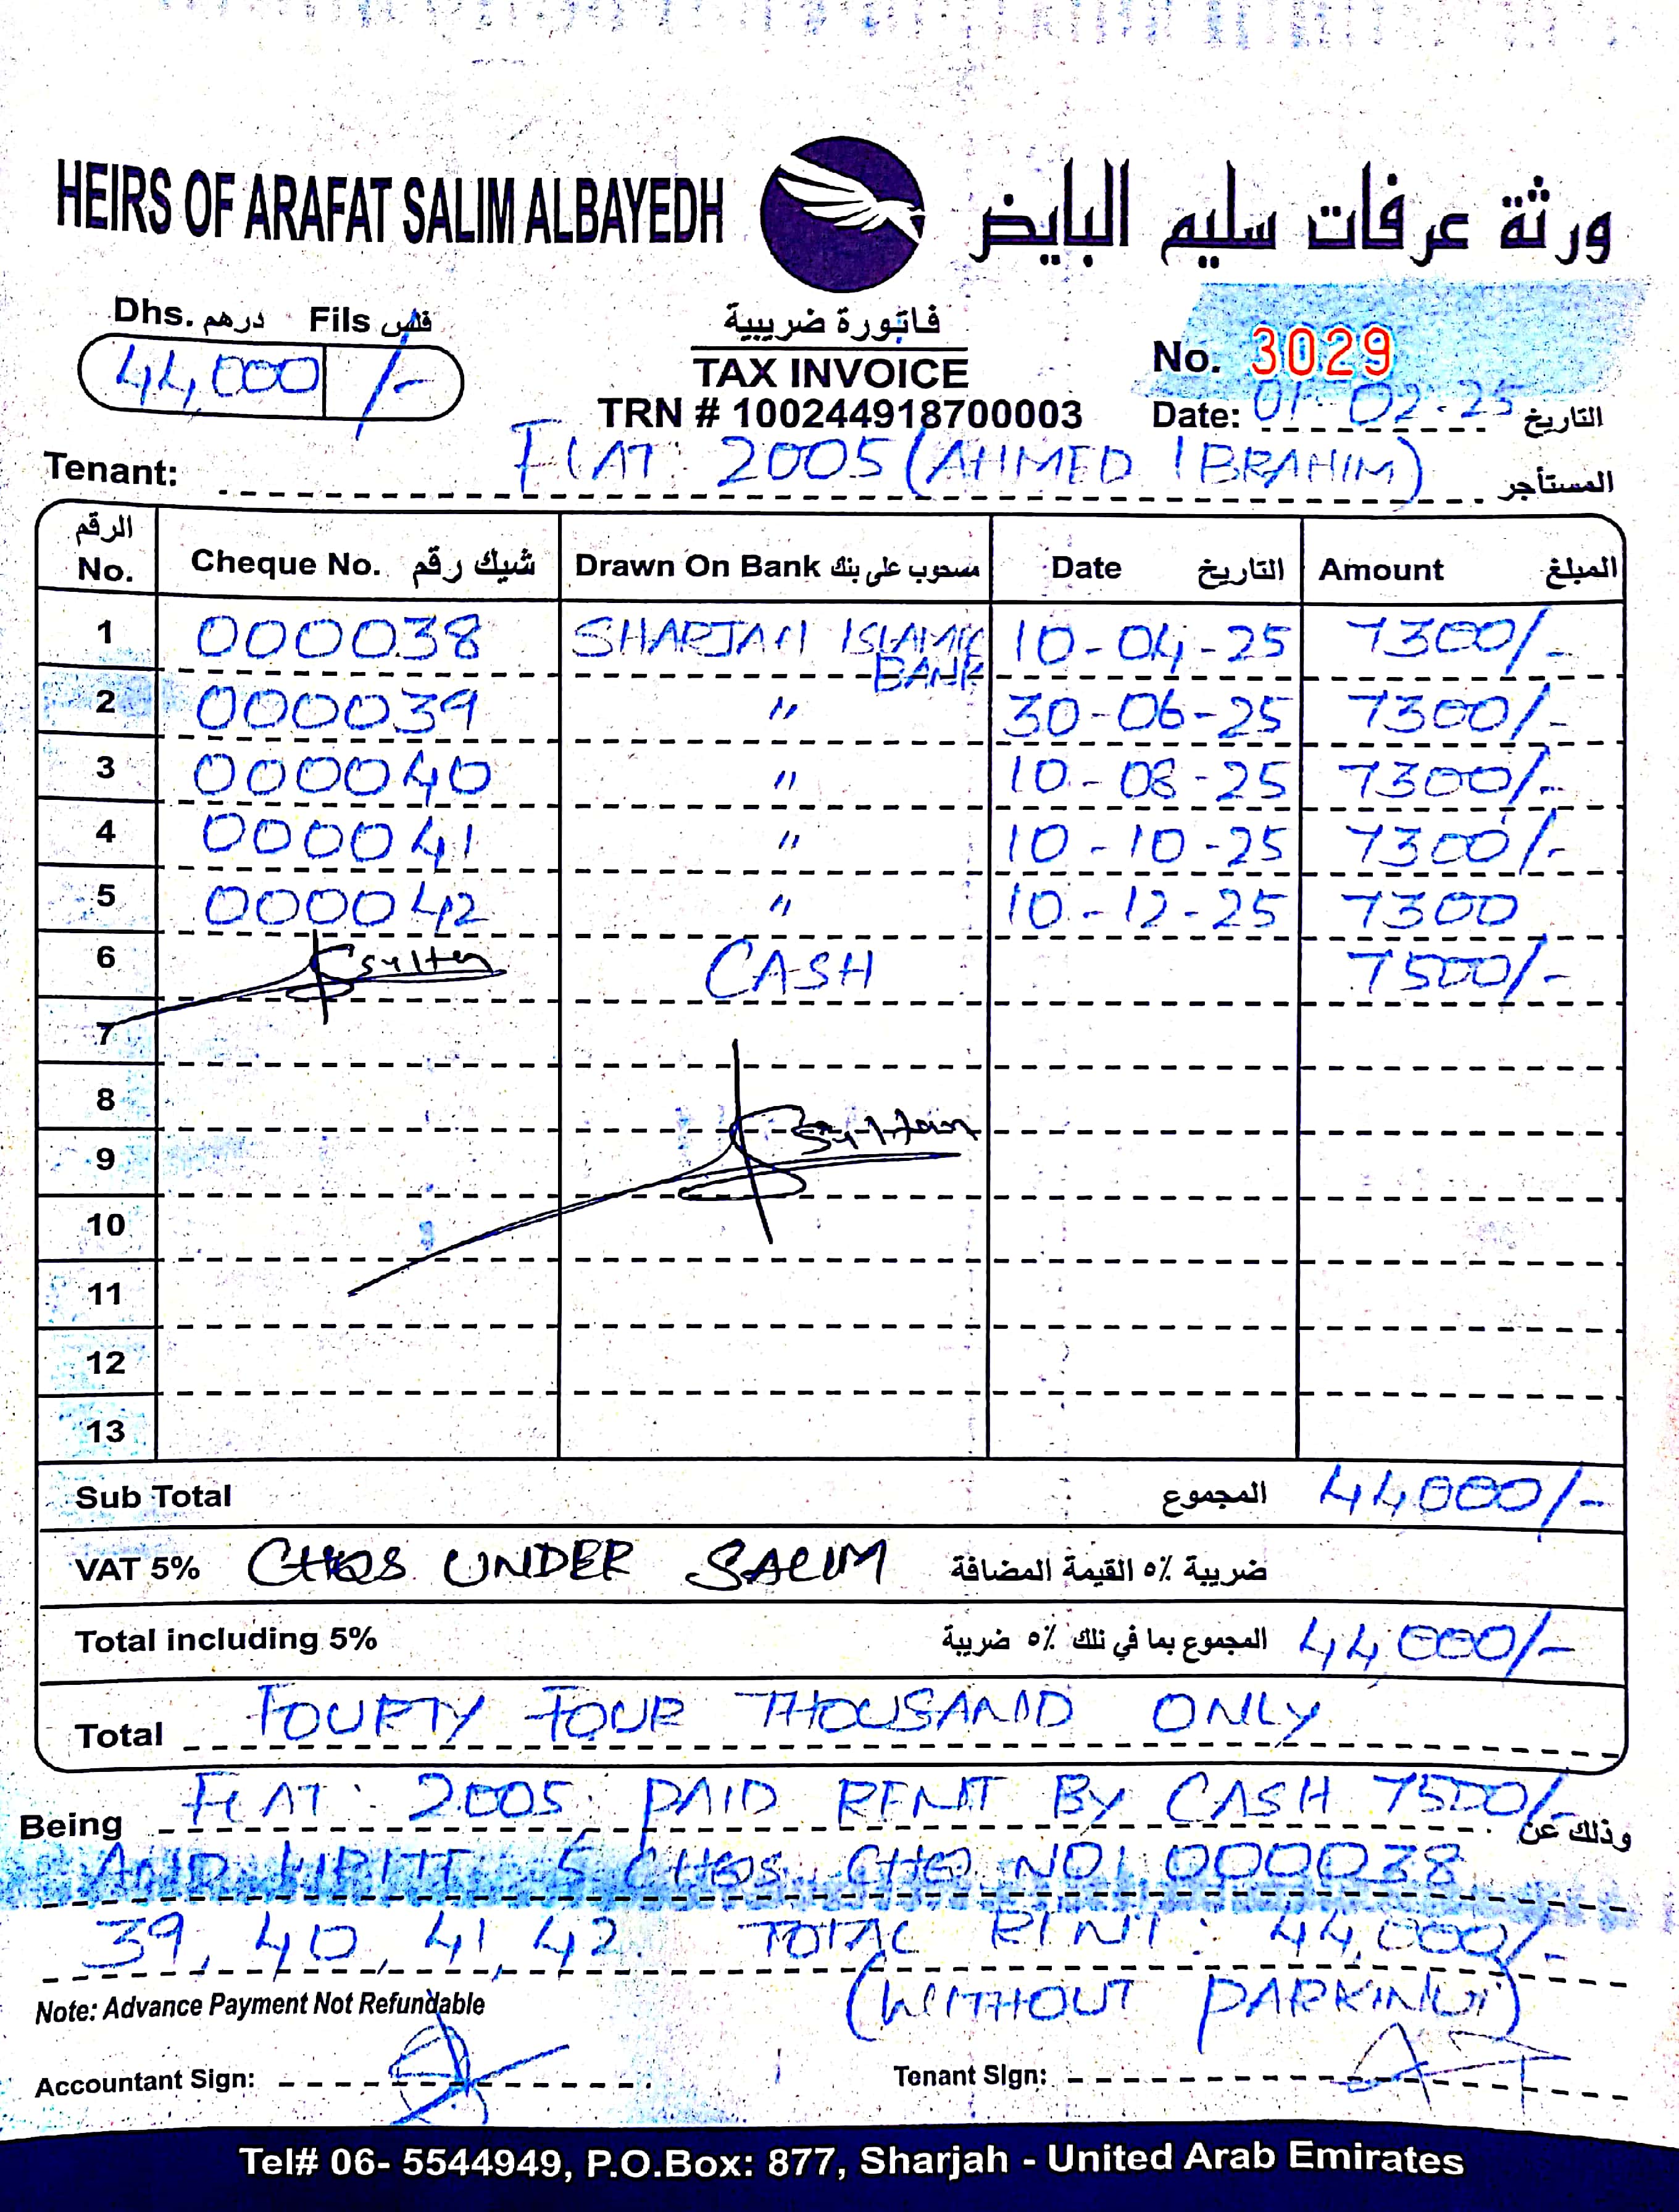 HEIRS OF ARAFAT SALIM ALBAYEDH ورثة عرفات سليم البايض
Dhs. درهم Fils فلس
44,000 /-
فاتورة ضريبية
TAX INVOICE
TRN # 100244918700003
No. 3029
Date: 01-02-25 التاريخ
Tenant: FLAT: 2005 (AHMED IBRAHIM) المستأجر
الرقم No. Cheque No. شيك رقم Drawn On Bank مسحوب على بنك Date التاريخ Amount المبلغ
1 000038 SHARJAH ISLAMIC BANK 10-04-25 7300/-
2 000039 " 30-06-25 7300/-
3 000040 " 10-08-25 7300/-
4 000041 " 10-10-25 7300/-
5 000042 " 10-12-25 7300
6 Sultan CASH 7500/-
7
8
9 Sultan
10
11
12
13
Sub Total المجموع 44000/-
VAT 5% CHQS UNDER SALIM ضريبة ٥٪ القيمة المضافة
Total including 5% المجموع بما في ذلك ٥٪ ضريبة 44,000/-
Total FOURTY FOUR THOUSAND ONLY
Being FLAT: 2005: PAID RENT BY CASH 7500/- وذلك عن
AND WITH 5 CHQS. CHQ NO: 000038
39, 40, 41, 42. TOTAL RENT: 44,000/-
(WITHOUT PARKING)
Note: Advance Payment Not Refundable
Accountant Sign: Tenant Sign:
Tel# 06- 5544949, P.O.Box: 877, Sharjah - United Arab Emirates